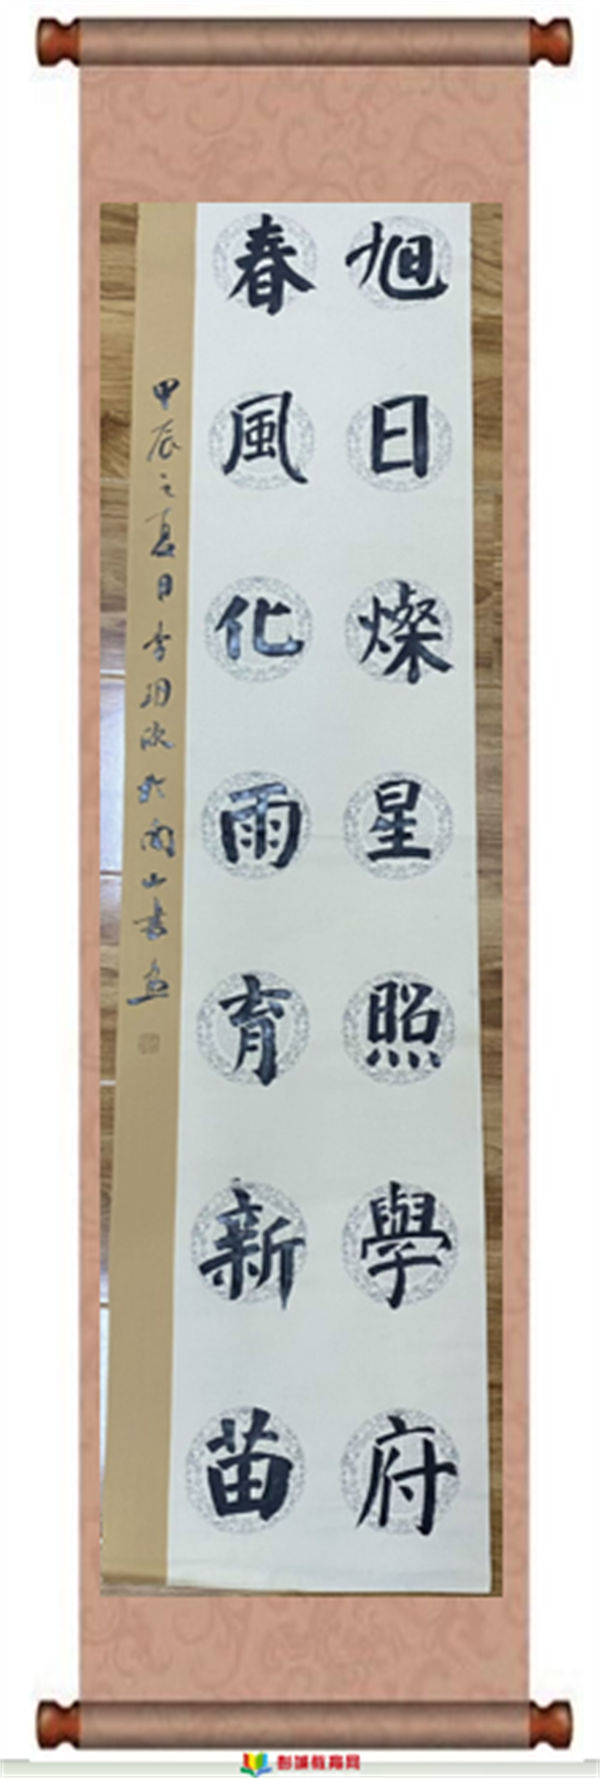 旭日燦星照學府
春風化雨育新苗
甲辰之夏日李玥欣於阁山書画
彭城教育网